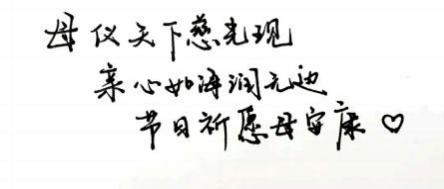 母仪天下慈光现
亲心如海润无边
节日祈愿母安康♡